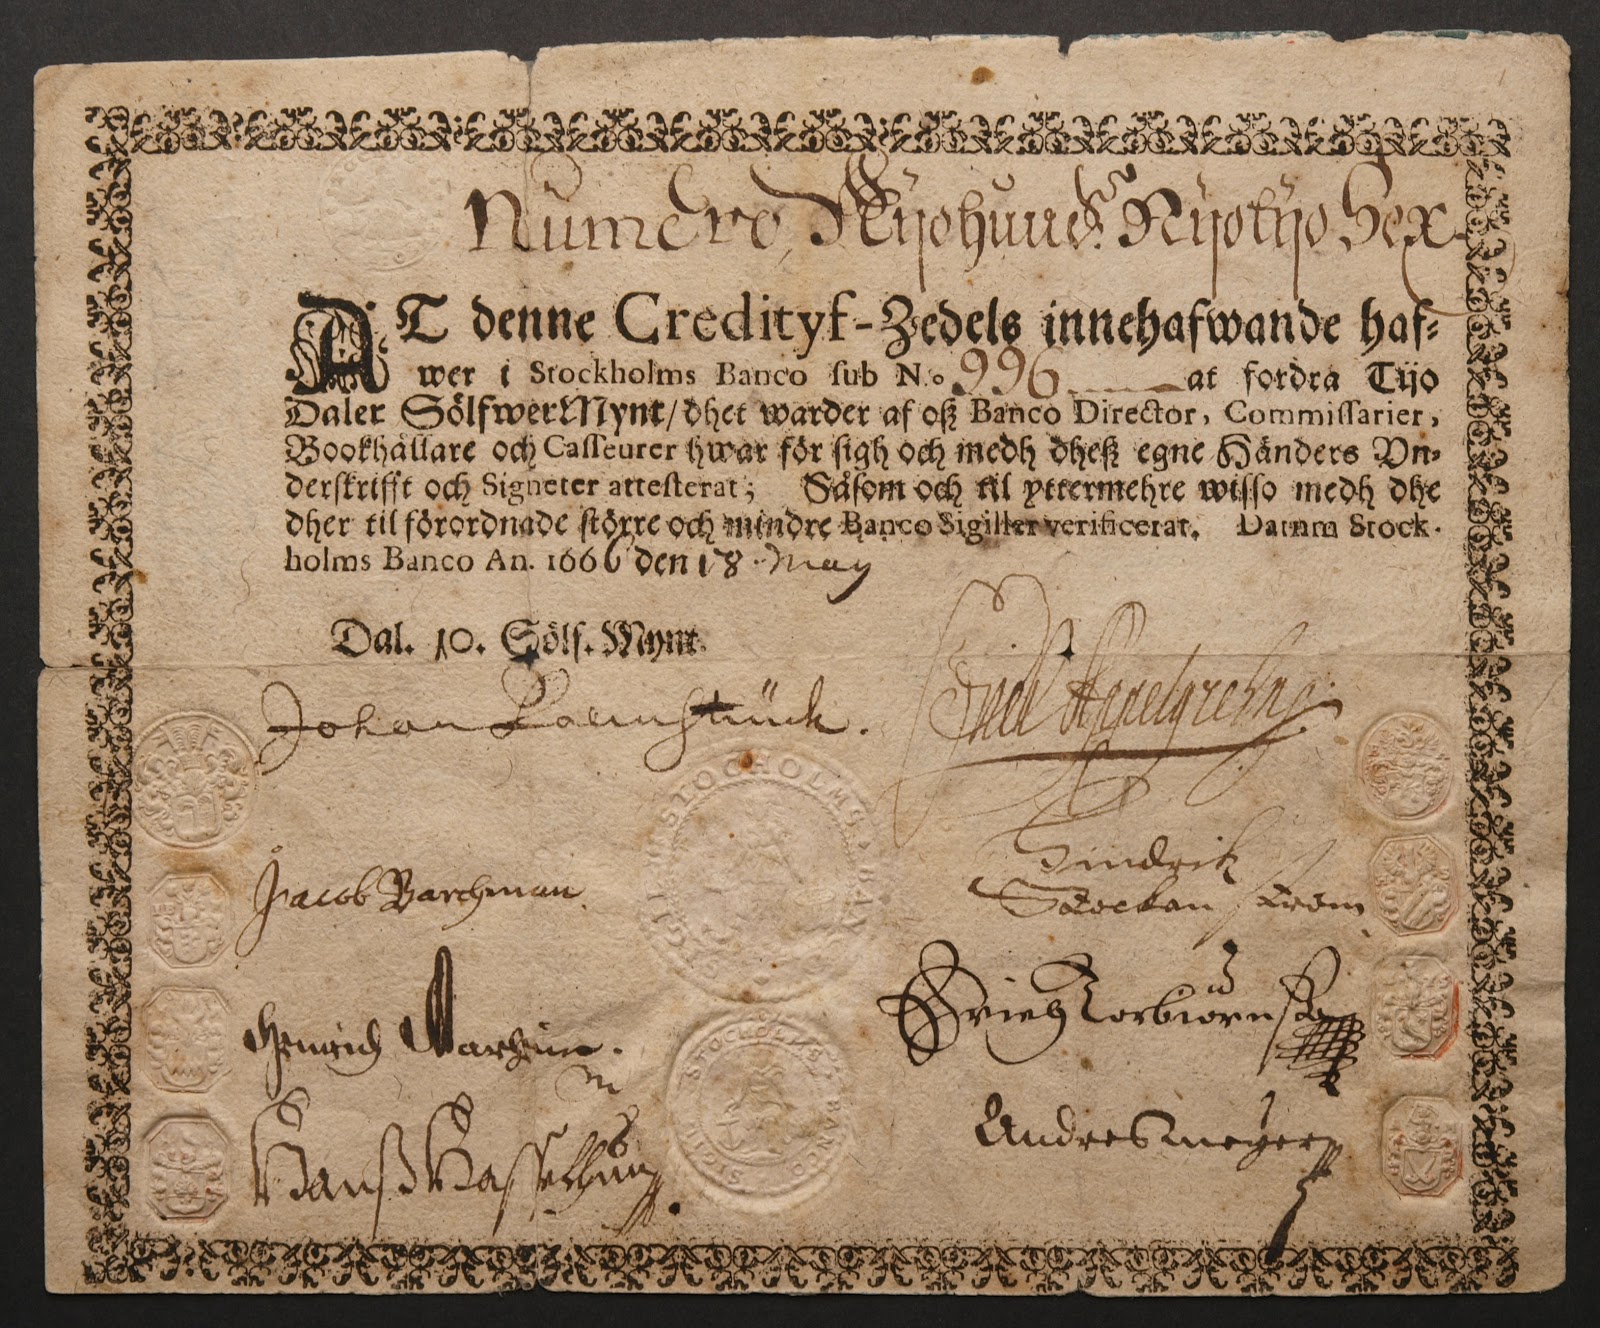 Numero, Nijohund: Nijotijo Sex
AT denne Credityf-Zedels innehafwande haf-
wer i Stockholms Banco sub N.o 996 at fordra Tijo
Daler SölfwerMynt/dhet warder af oß Banco Director, Commissarier,
Bookhållare och Casseurer hwar för sigh och medh dheß egne Händers Vn-
derskrifft och Signeter attesterat; Såsom och til yttermehre wisso medh dhe
dher til förordnade större och mindre Banco Sigiller verificerat. Datum Stock-
holms Banco An. 1666 den 18. May
Dal. 10. Sölf. Mynt.
Johan
Jacob Barchman
Hindrik
Andres meyer
STOCHOLMS BANCO
STOCHOLMS BANCO